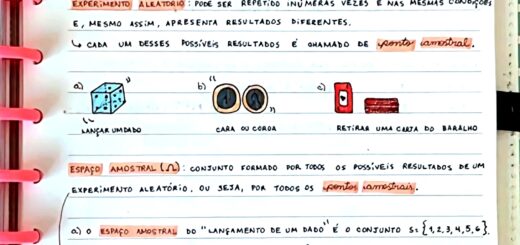 EXPERIMENTO ALEATÓRIO: PODE SER REPETIDO INÚMERAS VEZES E NAS MESMAS CONDIÇÕES
E, MESMO ASSIM, APRESENTA RESULTADOS DIFERENTES.
↳ CADA UM DESSES POSSÍVEIS RESULTADOS É CHAMADO DE ponto amostral.
a) b) c)
LANÇAR UM DADO CARA OU COROA RETIRAR UMA CARTA DO BARALHO
ESPAÇO AMOSTRAL (Ω): CONJUNTO FORMADO POR TODOS OS POSSÍVEIS RESULTADOS DE UM
EXPERIMENTO ALEATÓRIO, OU SEJA, POR TODOS OS pontos amostrais.
a) O ESPAÇO AMOSTRAL DO "LANÇAMENTO DE UM DADO" É O CONJUNTO S = {1, 2, 3, 4, 5, 6}.